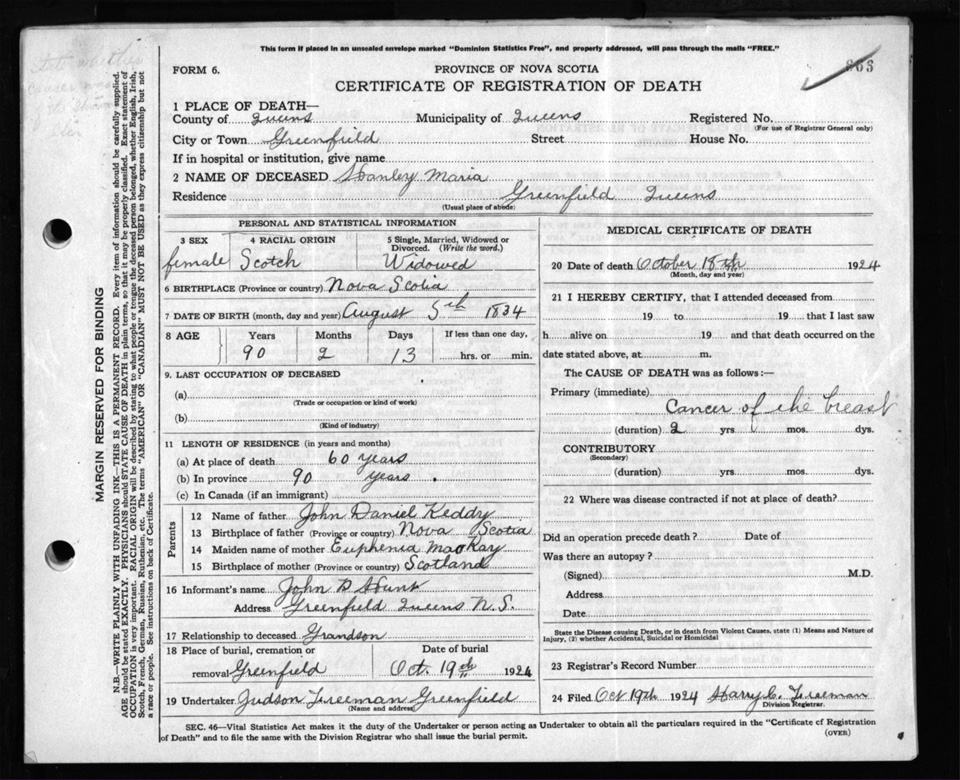 This form if placed in an unsealed envelope marked "Dominion Statistics Free", and properly addressed, will pass through the mails "FREE."
FORM 6.
PROVINCE OF NOVA SCOTIA
863
CERTIFICATE OF REGISTRATION OF DEATH
1 PLACE OF DEATH—
County of Queens Municipality of Queens Registered No.
(For use of Registrar General only)
City or Town Greenfield Street House No.
If in hospital or institution, give name
2 NAME OF DECEASED Hanley Maria
Residence Greenfield Queens
(Usual place of abode)
PERSONAL AND STATISTICAL INFORMATION
3 SEX 4 RACIAL ORIGIN 5 Single, Married, Widowed or Divorced. (Write the word.)
female Scotch Widowed
6 BIRTHPLACE (Province or country) Nova Scotia
7 DATE OF BIRTH (month, day and year) August 5th 1834
8 AGE Years Months Days If less than one day,
90 2 13 hrs. or min.
9. LAST OCCUPATION OF DECEASED
(a)
(Trade or occupation or kind of work)
(b)
(Kind of industry)
11 LENGTH OF RESIDENCE (in years and months)
(a) At place of death 60 years
(b) In province 90 years .
(c) In Canada (if an immigrant)
Parents
12 Name of father John Daniel Keddy
13 Birthplace of father (Province or country) Nova Scotia
14 Maiden name of mother Euphenia MacKay
15 Birthplace of mother (Province or country) Scotland
16 Informant's name John D Hunt
Address Greenfield Queens N.S.
17 Relationship to deceased Grandson
18 Place of burial, cremation or removal Greenfield
Date of burial Oct. 19th 1924
19 Undertaker Judson Freeman Greenfield
(Name and address)
MEDICAL CERTIFICATE OF DEATH
20 Date of death October 18th 1924
(Month, day and year)
21 I HEREBY CERTIFY, that I attended deceased from
19 to 19 that I last saw
h alive on 19 and that death occurred on the
date stated above, at m.
The CAUSE OF DEATH was as follows:—
Primary (immediate)
Cancer of the breast
(duration) 2 yrs. mos. dys.
CONTRIBUTORY
(Secondary)
(duration) yrs. mos. dys.
22 Where was disease contracted if not at place of death?
Did an operation precede death? Date of
Was there an autopsy?
(Signed) M.D.
Address
Date
State the Disease causing Death, or in death from Violent Causes, state (1) Means and Nature of
Injury, (2) whether Accidental, Suicidal or Homicidal
23 Registrar's Record Number
24 Filed Oct 19th 1924 Harry C. Freeman
Division Registrar.
SEC. 46—Vital Statistics Act makes it the duty of the Undertaker or person acting as Undertaker to obtain all the particulars required in the "Certificate of Registration
of Death" and to file the same with the Division Registrar who shall issue the burial permit.
(OVER)
MARGIN RESERVED FOR BINDING
N.B.—WRITE PLAINLY WITH UNFADING INK—THIS IS A PERMANENT RECORD. Every item of information should be carefully supplied.
AGE should be stated EXACTLY. PHYSICIANS should STATE CAUSE OF DEATH in plain terms, so that it may be properly classified. Exact statement of
OCCUPATION is very important. RACIAL ORIGIN will be described by stating to what people or tongue the deceased person belonged, whether English, Irish,
Scotch, French, German, Russian, Ruthenian, etc. The terms "AMERICAN" OR "CANADIAN" MUST NOT BE USED as they express citizenship but not
a race or people. See instructions on back of Certificate.